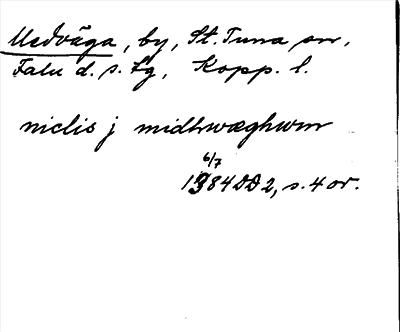 Medväga, by, St. Tuna sn,
Falu d. s. lg, Kopp. l.
niclis j midhwæghwm
6/7
1384 DD 2, s. 4 or.